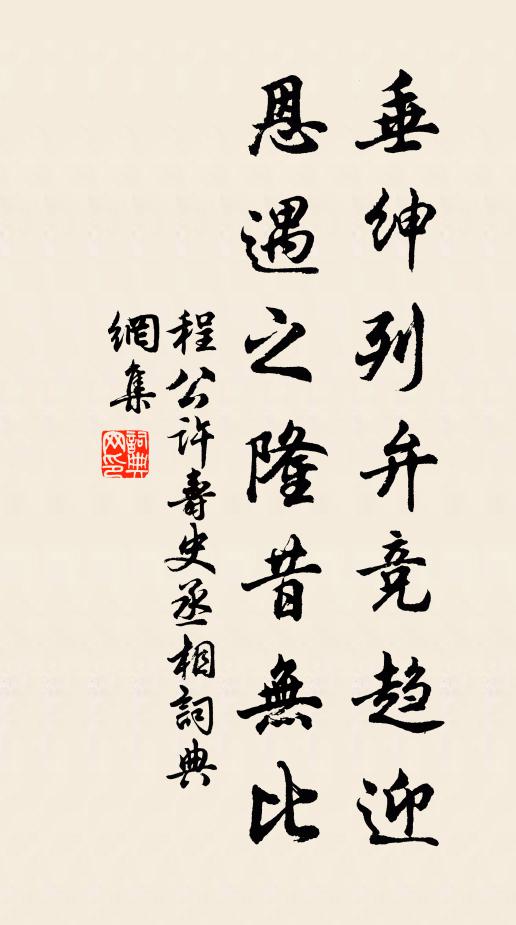 垂紳列弁竞趋迎
恩遇之隆昔無比
程公許壽史丞相詞典
網集
詞典
网印